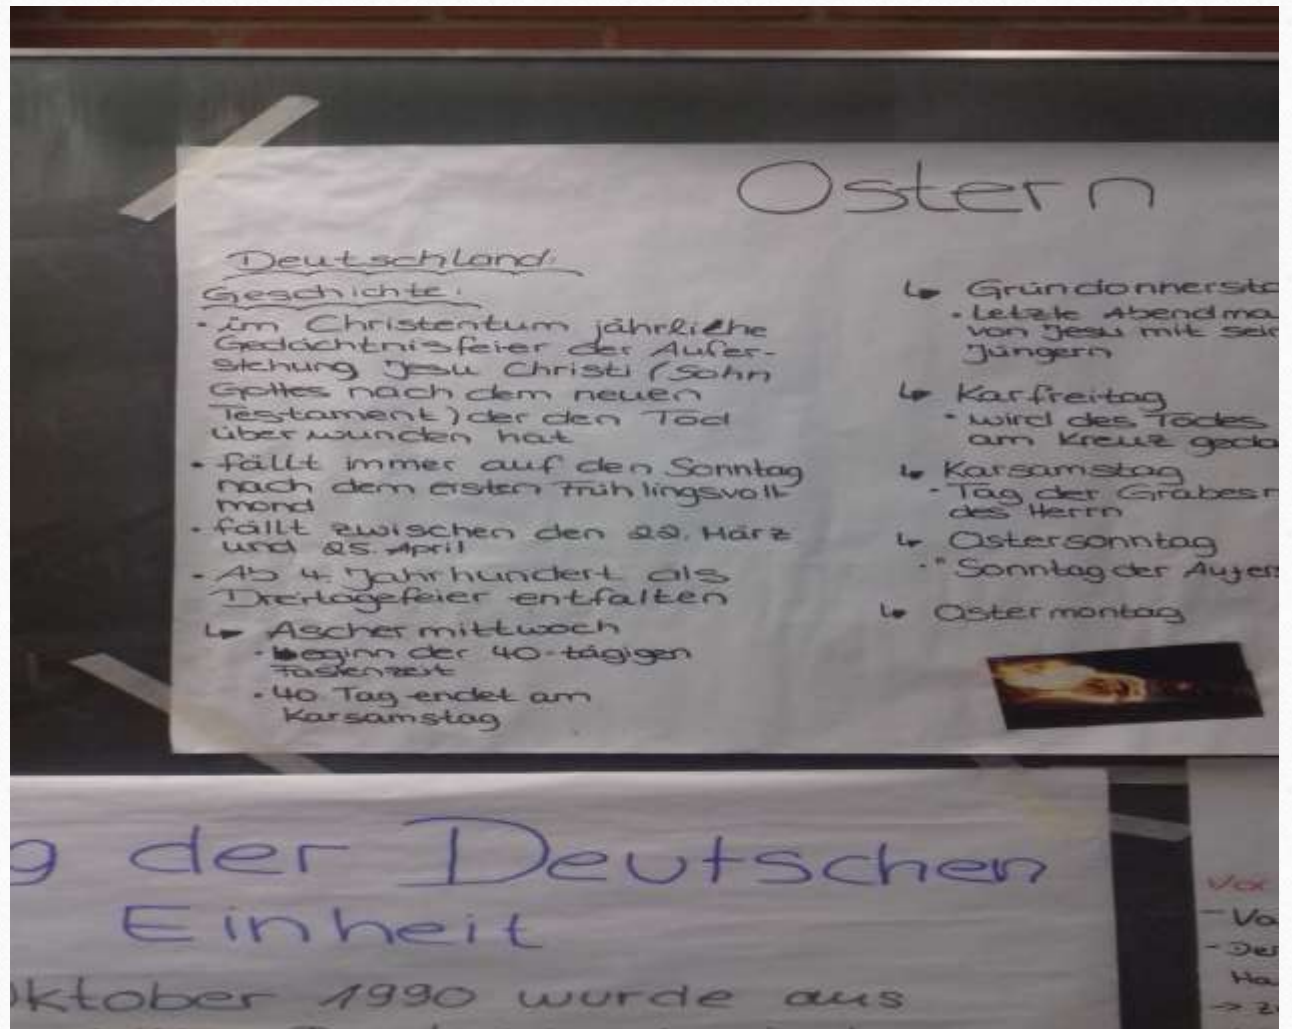 Ostern
Deutschland:
Geschichte:
• im Christentum jährliche
Gedächtnisfeier der Aufer-
stehung Jesu Christi (Sohn
Gottes nach dem neuen
Testament) der den Tod
überwunden hat
• fällt immer auf den Sonntag
nach dem ersten Frühlingsvoll
mond
• fällt zwischen den 22. März
und 25. April
• Ab 4. Jahrhundert als
Dreitagefeier entfalten
↳ Aschermittwoch
• beginn der 40-tägigen
Fastenzeit
• 40 Tag endet am
Karsamstag
↳ Gründonnersta
• Letzte Abendma
von Jesu mit sei
Jüngern
↳ Karfreitag
• wird des Todes
am Kreuz geda
↳ Karsamstag
• Tag der Grabesr
des Herrn
↳ Ostersonntag
• "Sonntag der Aufers
↳ Ostermontag
g der Deutschen
Einheit
Oktober 1990 wurde aus
Vor
- Vo
- Der
Ha
→ z